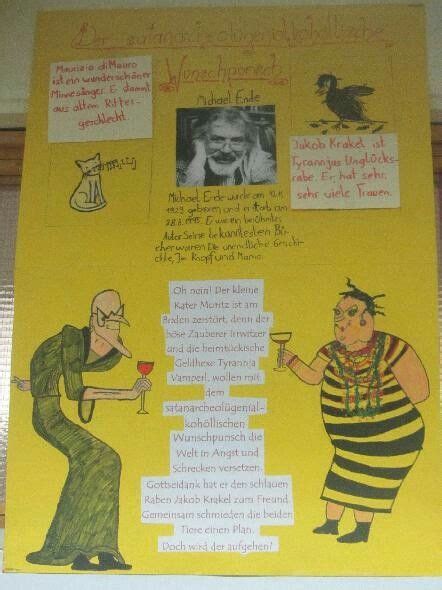 Der satanarchäolügenialkohöllische
Wunschpunsch
Maurizio di Mauro
ist ein wunderschöner
Minnesänger. Er stammt
aus altem Ritter-
geschlecht.
Michael Ende
Jakob Krakel ist
Tyrannjas Unglücks-
rabe. Er hat sehr,
sehr viele Frauen.
Michael Ende wurde am 12.11.
1929 geboren und er starb am
28.8.1995. Er war ein berühmter
Autor. Seine bekanntesten Bü-
cher waren Die unendliche Geschi-
chte, Jim Knopf und Momo.
Oh nein! Der kleine
Kater Moritz ist am
Boden zerstört, denn der
böse Zauberer Irrwitzer
und die heimtückische
Geldhexe Tyrannja
Vamperl, wollen mit
dem
satanarcheolügenial-
kohöllischen
Wunschpunsch die
Welt in Angst und
Schrecken versetzen.
Gottseidank hat er den schlauen
Raben Jakob Krakel zum Freund.
Gemeinsam schmieden die beiden
Tiere einen Plan.
Doch wird der aufgehen?